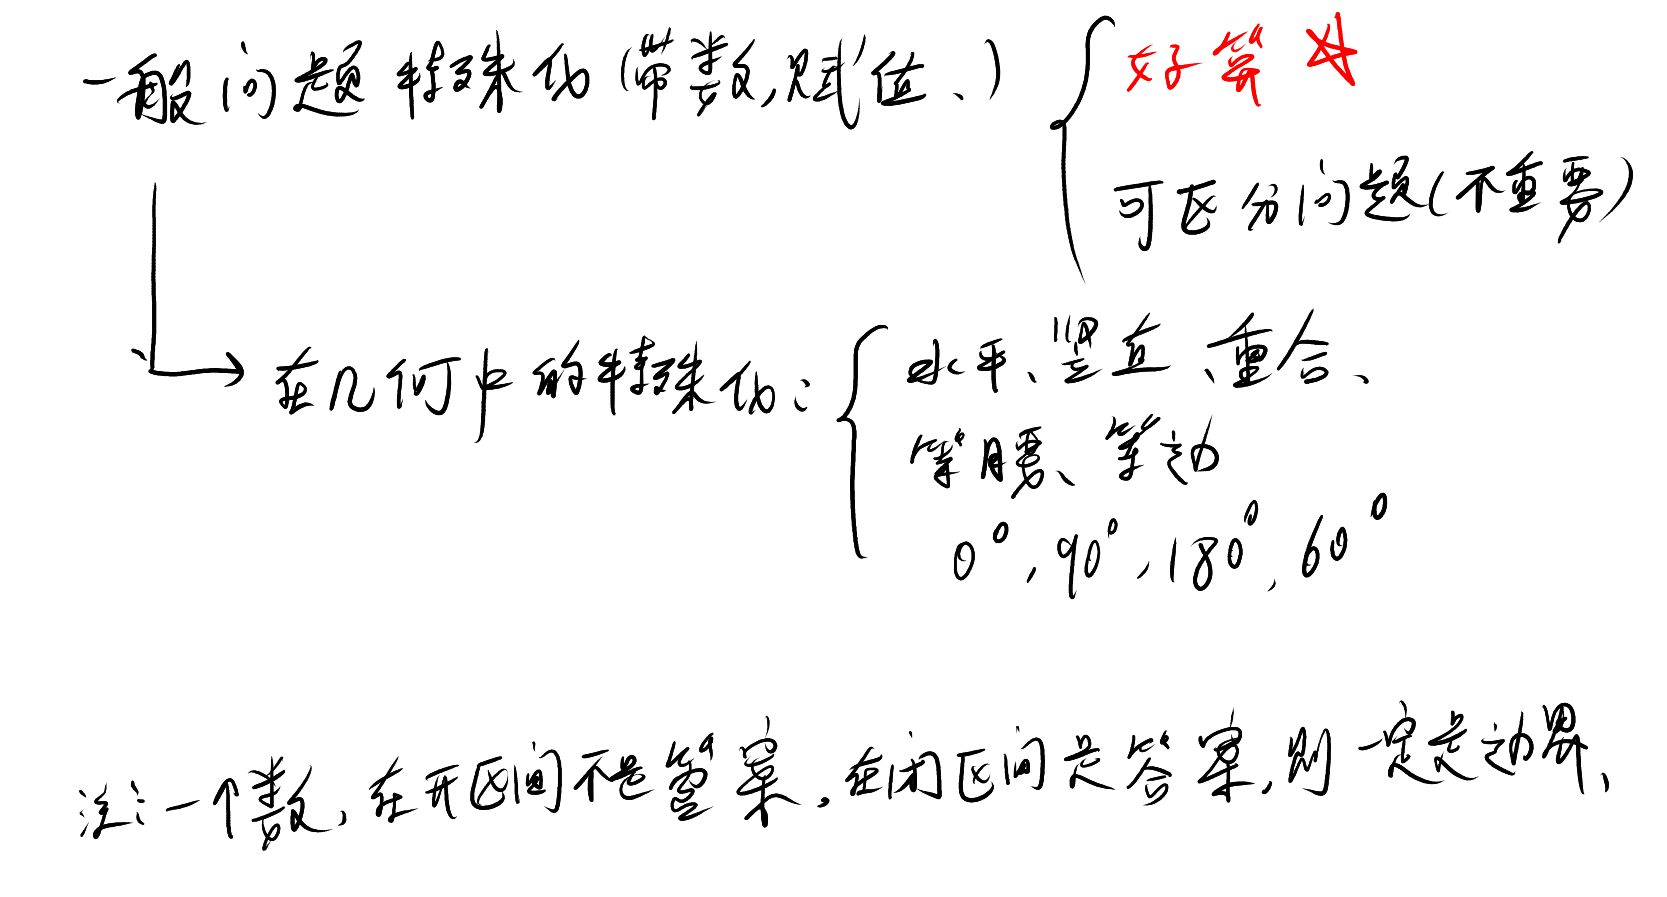 一般问题特殊化(带数,赋值、)
好算
可区分问题(不重要)
在几何中的特殊化:
水平、竖直、重合、
等腰、等边
0°,90°,180°,60°
注:一个数,在开区间不是答案,在闭区间是答案,则一定是边界、